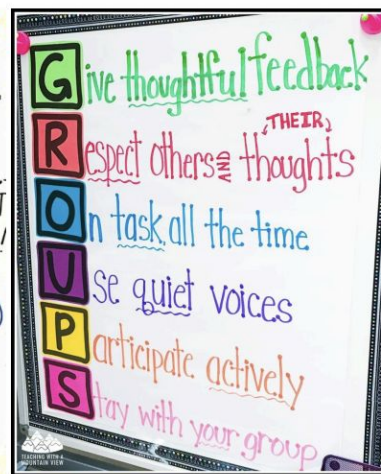 Give thoughtful feedback
THEIR
Respect others AND thoughts
On task, all the time
Use quiet voices
Participate actively
Stay with your group
TEACHING WITH A
MOUNTAIN VIEW